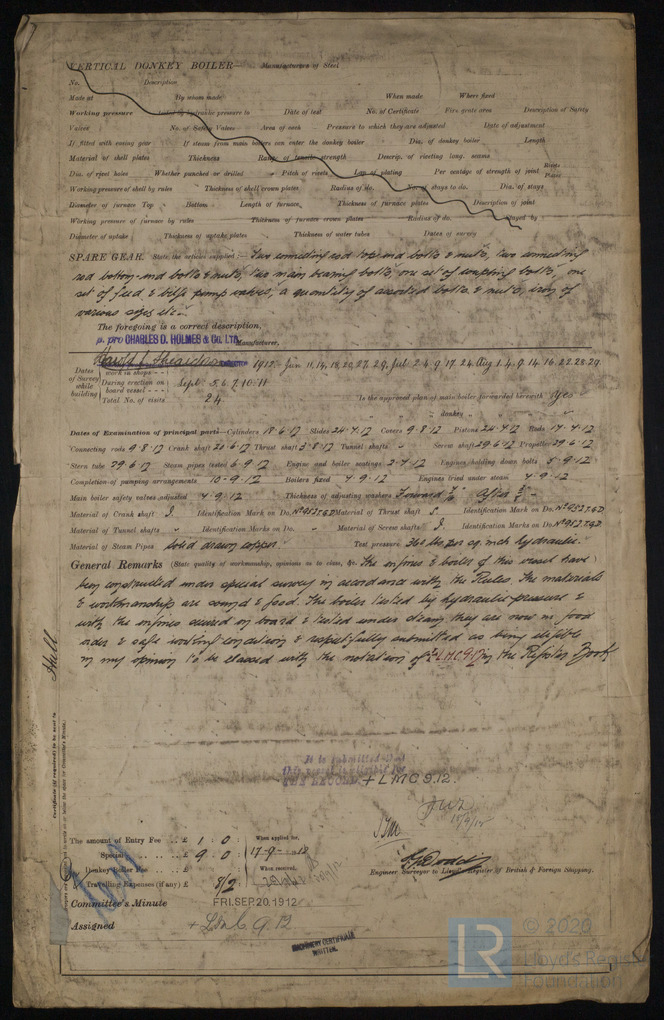 VERTICAL DONKEY BOILER— Manufacturers of Steel
No. Description
Made at By whom made When made Where fixed
Working pressure tested by hydraulic pressure to Date of test No. of Certificate Fire grate area Description of Safety
Valves No. of Safety Valves Area of each Pressure to which they are adjusted Date of adjustment
If fitted with easing gear If steam from main boilers can enter the donkey boiler Dia. of donkey boiler Length
Material of shell plates Thickness Range of tensile strength Descrip. of riveting long. seams
Dia. of rivet holes Whether punched or drilled Pitch of rivets Lap of plating Per centage of strength of joint Rivets Plates
Working pressure of shell by rules Thickness of shell crown plates Radius of do. No. of stays to do. Dia. of stays
Diameter of furnace Top Bottom Length of furnace Thickness of furnace plates Description of joint
Working pressure of furnace by rules Thickness of furnace crown plates Radius of do. Stayed by
Diameter of uptake Thickness of uptake plates Thickness of water tubes Dates of survey
SPARE GEAR. State the articles supplied:— Two connecting rod top end bolts & nuts, two connecting
rod bottom end bolts & nuts, two main bearing bolts, one set of coupling bolts, one
set of feed & bilge pump valves, a quantity of assorted bolts & nuts, iron of
various sizes etc.
The foregoing is a correct description,
p. pro CHARLES D. HOLMES & Co. LTD. Manufacturer.
Dates of Survey while building
work in shops - - 1912. Jun 11, 14, 18, 20, 27, 29, Jul 2. 4. 9. 17. 24. Aug 1. 4. 9. 14. 16. 22. 28. 29.
During erection on board vessel - - Sept 3. 6. 7. 10. 11
Total No. of visits 24 Is the approved plan of main boiler forwarded herewith Yes
" " " donkey " " "
Dates of Examination of principal parts—Cylinders 18.6.12 Slides 24.7.12 Covers 9.8.12 Pistons 24.7.12 Rods 17.7.12
Connecting rods 9.8.12 Crank shaft 20.6.12 Thrust shaft 3.8.12 Tunnel shafts " Screw shaft 29.6.12 Propeller 29.6.12
Stern tube 29.6.12 Steam pipes tested 6.9.12 Engine and boiler seatings 2.7.12 Engines holding down bolts 5.9.12
Completion of pumping arrangements 10.9.12 Boilers fixed 4.9.12 Engines tried under steam 4.9.12
Main boiler safety valves adjusted 4.9.12 Thickness of adjusting washers Forward After
Material of Crank shaft I. Identification Mark on Do. Material of Thrust shaft S. Identification Mark on Do.
Material of Tunnel shafts " Identification Marks on Do. " Material of Screw shafts I. Identification Marks on Do.
Material of Steam Pipes Solid drawn copper. Test pressure 360 lbs per sq. inch hydraulic.
General Remarks (State quality of workmanship, opinions as to class, &c. The engines & boiler of this vessel have
been constructed under special survey in accordance with the Rules. The materials
& workmanship are sound & good. The boiler tested by hydraulic pressure &
with the engines secured on board & tested under steam they are now in good
order & safe working condition & respectfully submitted as being eligible
in my opinion to be classed with the notation of + L.M.C. 9.12 in the Register Book
Certificate (if required) to be sent to Hull
It is submitted that
this vessel is eligible for
THE RECORD + LMC 9.12.
The amount of Entry Fee . . £ 1 : 0 : When applied for,
Special . . £ 9 : 0 : 17-9-1912
Donkey Boiler Fee . . £ When received,
Travelling Expenses (if any) £ 8/2
Engineer Surveyor to Lloyd's Register of British & Foreign Shipping.
Committee's Minute FRI. SEP. 20. 1912
Assigned + L.M.C 9.12
MACHINERY CERTIFICATE
WRITTEN.
LR
© 2020
Lloyd's Register
Foundation